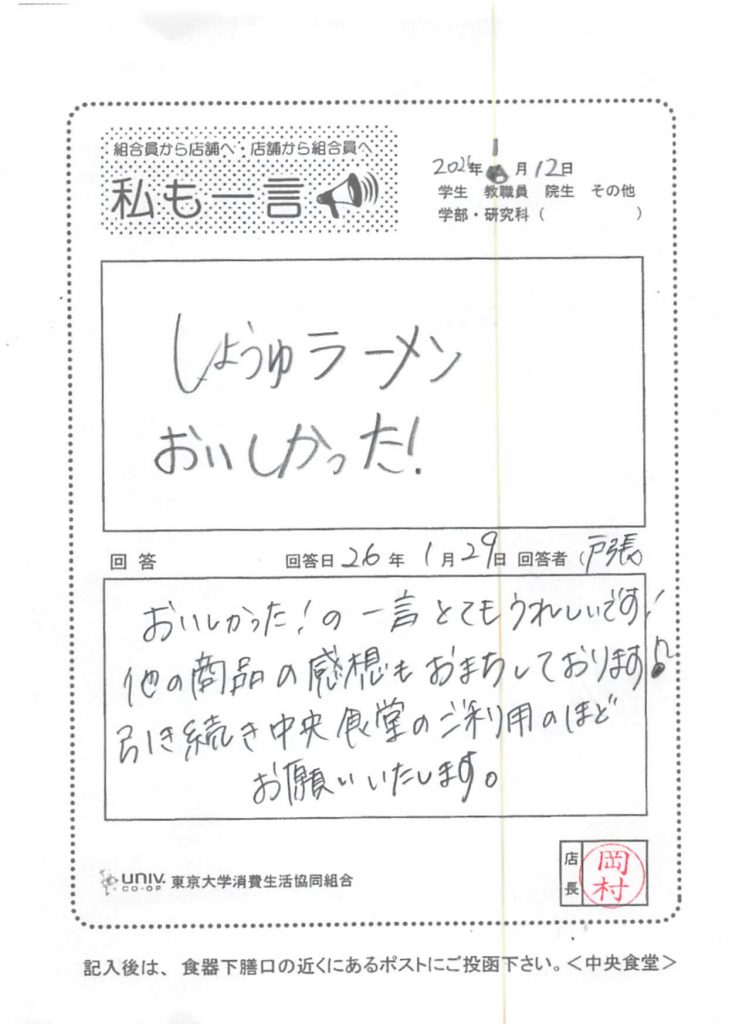 組合員から店舗へ・店舗から組合員へ
私も一言
2026年 1月12日
学生 教職員 院生 その他
学部・研究科（ ）
しょうゆラーメン
おいしかった!
回答 回答日26年 1月29日 回答者 (戸張)
おいしかった!の一言とてもうれしいです!
他の商品の感想もおまちしております♪
引き続き中央食堂のご利用のほど
お願いいたします。
UNIV. CO-OP 東京大学消費生活協同組合
店長 岡村
記入後は、食器下膳口の近くにあるポストにご投函下さい。＜中央食堂＞